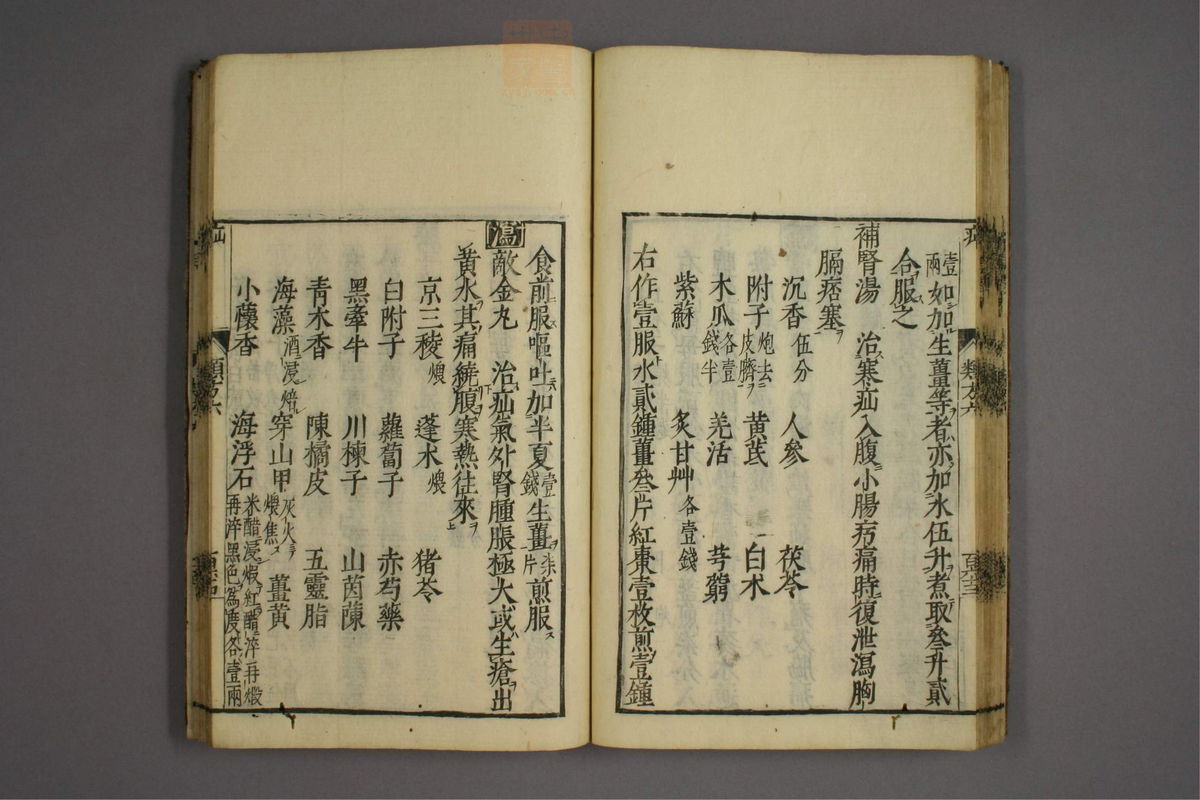 壹兩如加生薑等者亦加水伍升煮取叄升貳
合服之
補腎湯　治寒疝入腹小腸㽱痛時復泄瀉胸
膈痞塞
沉香伍分　人參　茯苓
附子炮去皮臍　黄芪　白朮
木瓜各壹錢半　羌活　芎藭
紫蘇　炙甘艸各壹錢
右作壹服水貳鍾薑叄片紅棗壹枚煎壹鍾
食前服嘔吐加半夏壹錢生薑柒片煎服
瀉
敵金丸　治疝氣外腎腫脹極大或生瘡出
黃水其痛繞腹寒熱往來
京三稜煨　蓬朮煨　猪苓
白附子　蘿蔔子　赤芍藥
黑牽牛　川楝子　山茵蔯
青木香　陳橘皮　五靈脂
海藻酒浸焙　穿山甲灰火煨焦　薑黄
小蘹香　海浮石米醋浸煅紅醋淬再煅再淬黑色為度各壹兩
疝
類方六
疝
類方六